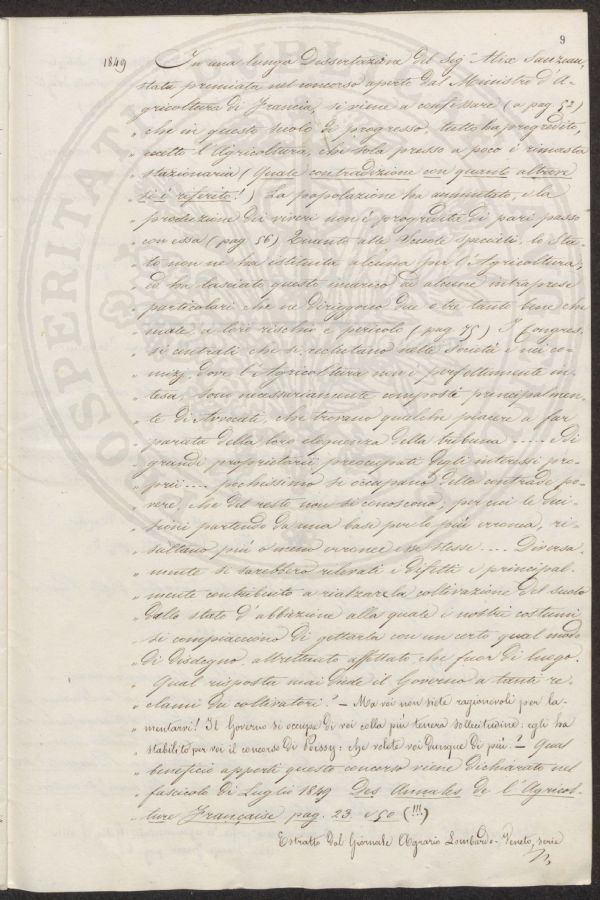 9
1849 In una lunga Dissertazione del Sig.r Alix Sauzeau,
stata premiata nel concorso aperto dal Ministro d'A-
gricoltura di Francia, si viene a confessare (a pag. 52)
„ che in questo secolo di progresso, tutto ha progredito,
„ eccetto l'Agricoltura, che sola presso a poco è rimasta
„ stazionaria (Quale contradizione con quanto altrove
si è riferito!) La popolazione ha aumentato, e la
„ produzione dei viveri non è progredita di pari passo
„ con essa (pag. 56) Quanto alle Scuole speciali, lo Sta-
„ to non ne ha istituita alcuna per l'Agricoltura,
„ ed ha lasciato questo incarico ad alcune intraprese
„ particolari che ne diriggono due o tre tanto bene che
„ male, a loro rischio e pericolo (pag. 75) I Congres-
„ si centrali che si reclutano nelle Società e nei co-
„ mizj, dove l'Agricoltura non è perfettamente in-
„ tesa, sono necessariamente composti principalmen-
„ te di Avvocati, che trovano qualche piacere a far
„ parata della loro eloquenza dalla tribuna .... e di
„ grandi proprietarii preoccupati degli interessi pro-
„ prii .... pochissimo si occupano delle contrade po-
„ vere, che del resto non si conoscono; per cui le deci-
„ sioni partendo da una base per lo più erronea, ri-
„ sultano più o meno erronee esse stesse .... Diversa-
„ mente si sarebbero rilevati i difetti e principal-
„ mente contribuito a rialzare la coltivazione del suolo
„ dallo stato d'abbiezione alla quale i nostri costumi
„ si compiacciono di gettarla con un certo qual modo
„ di disdegno, altrettanto affettato che fuor di luogo.
„ Qual risposta mai diede il Governo a tanti re-
„ clami dei coltivatori? – Ma voi non siete ragionevoli per la-
„ mentarvi! Il Governo si occupa di voi colla più tenera sollecitudine: egli ha
„ stabilito per voi il concorso di Poissy: che volete voi dunque di più? – Qual
„ beneficio apporti questo concorso viene dichiarato nel
„ fascicolo di Luglio 1849 Des Annales de l'Agricol-
„ ture Française pag. 23. e 50 (!!!)
Estratto dal Giornale Agrario Lombardo-Veneto, serie